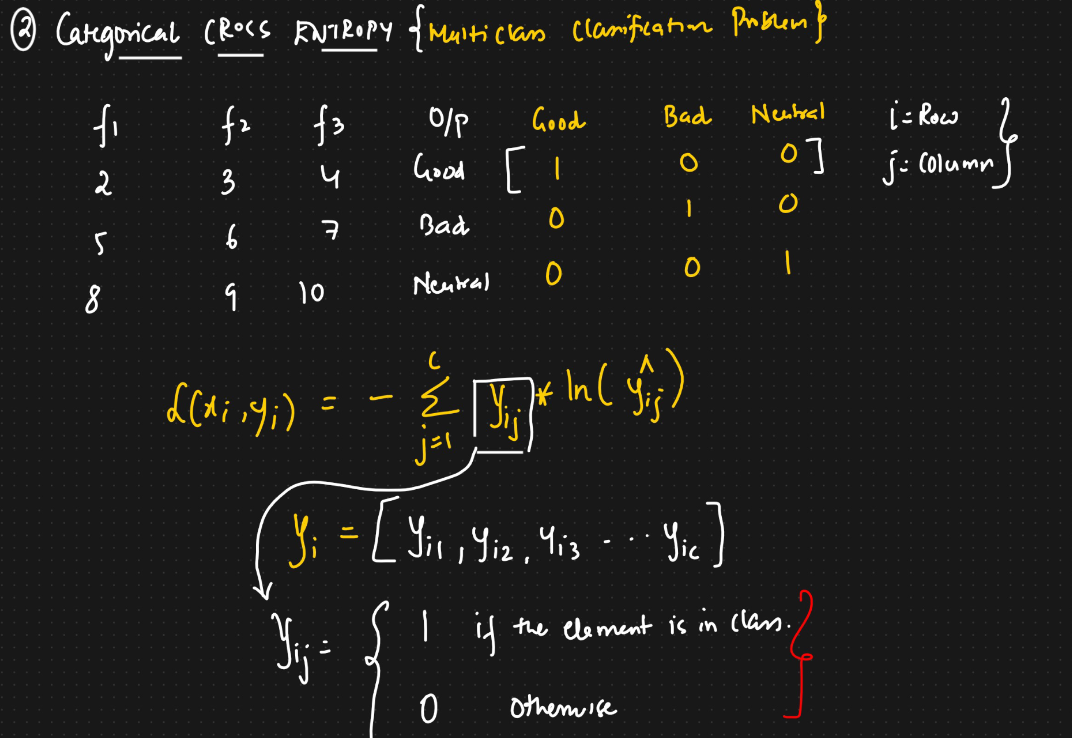 ② Categorical CROSS ENTROPY {Multiclass Classification Problem}
f1 f2 f3 O/P Good Bad Neutral i = Row
2 3 4 Good [ 1 0 0 ] j = Column }
5 6 7 Bad 0 1 0
8 9 10 Neutral 0 0 1
L(xi, yi) = - Σ_{j=1}^{C} yij * ln(ŷij)
yi = [ yi1, yi2, yi3 ---- yic ]
yij = { 1 if the element is in class. }
0 otherwise